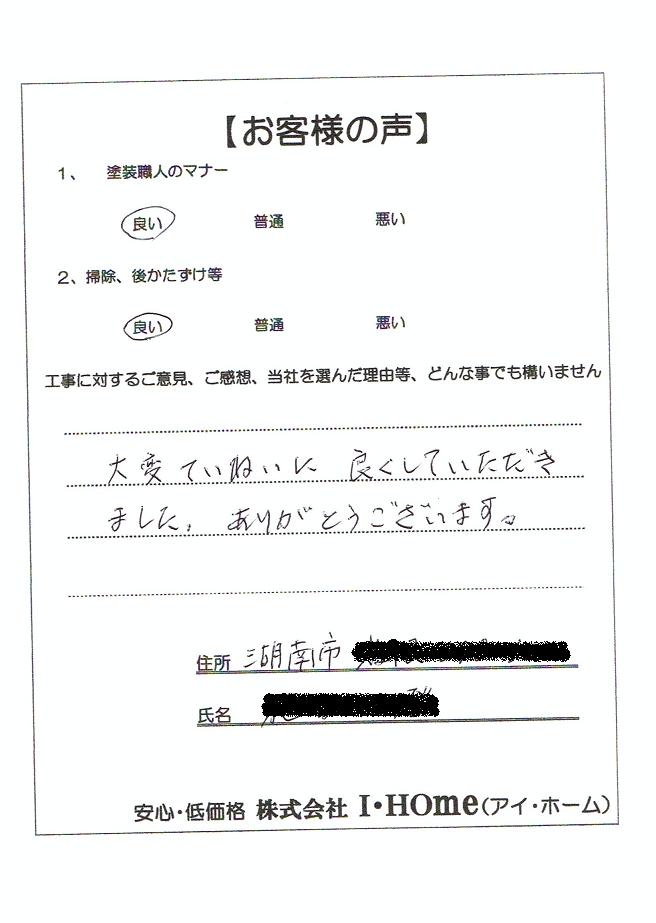 【お客様の声】
1、 塗装職人のマナー
良い 普通 悪い
2、掃除、後かたずけ等
良い 普通 悪い
工事に対するご意見、ご感想、当社を選んだ理由等、どんな事でも構いません
大変ていねいに 良くしていただき
ました。ありがとうございます。
住所 湖南市
氏名
安心・低価格 株式会社 I・HOme(アイ・ホーム)